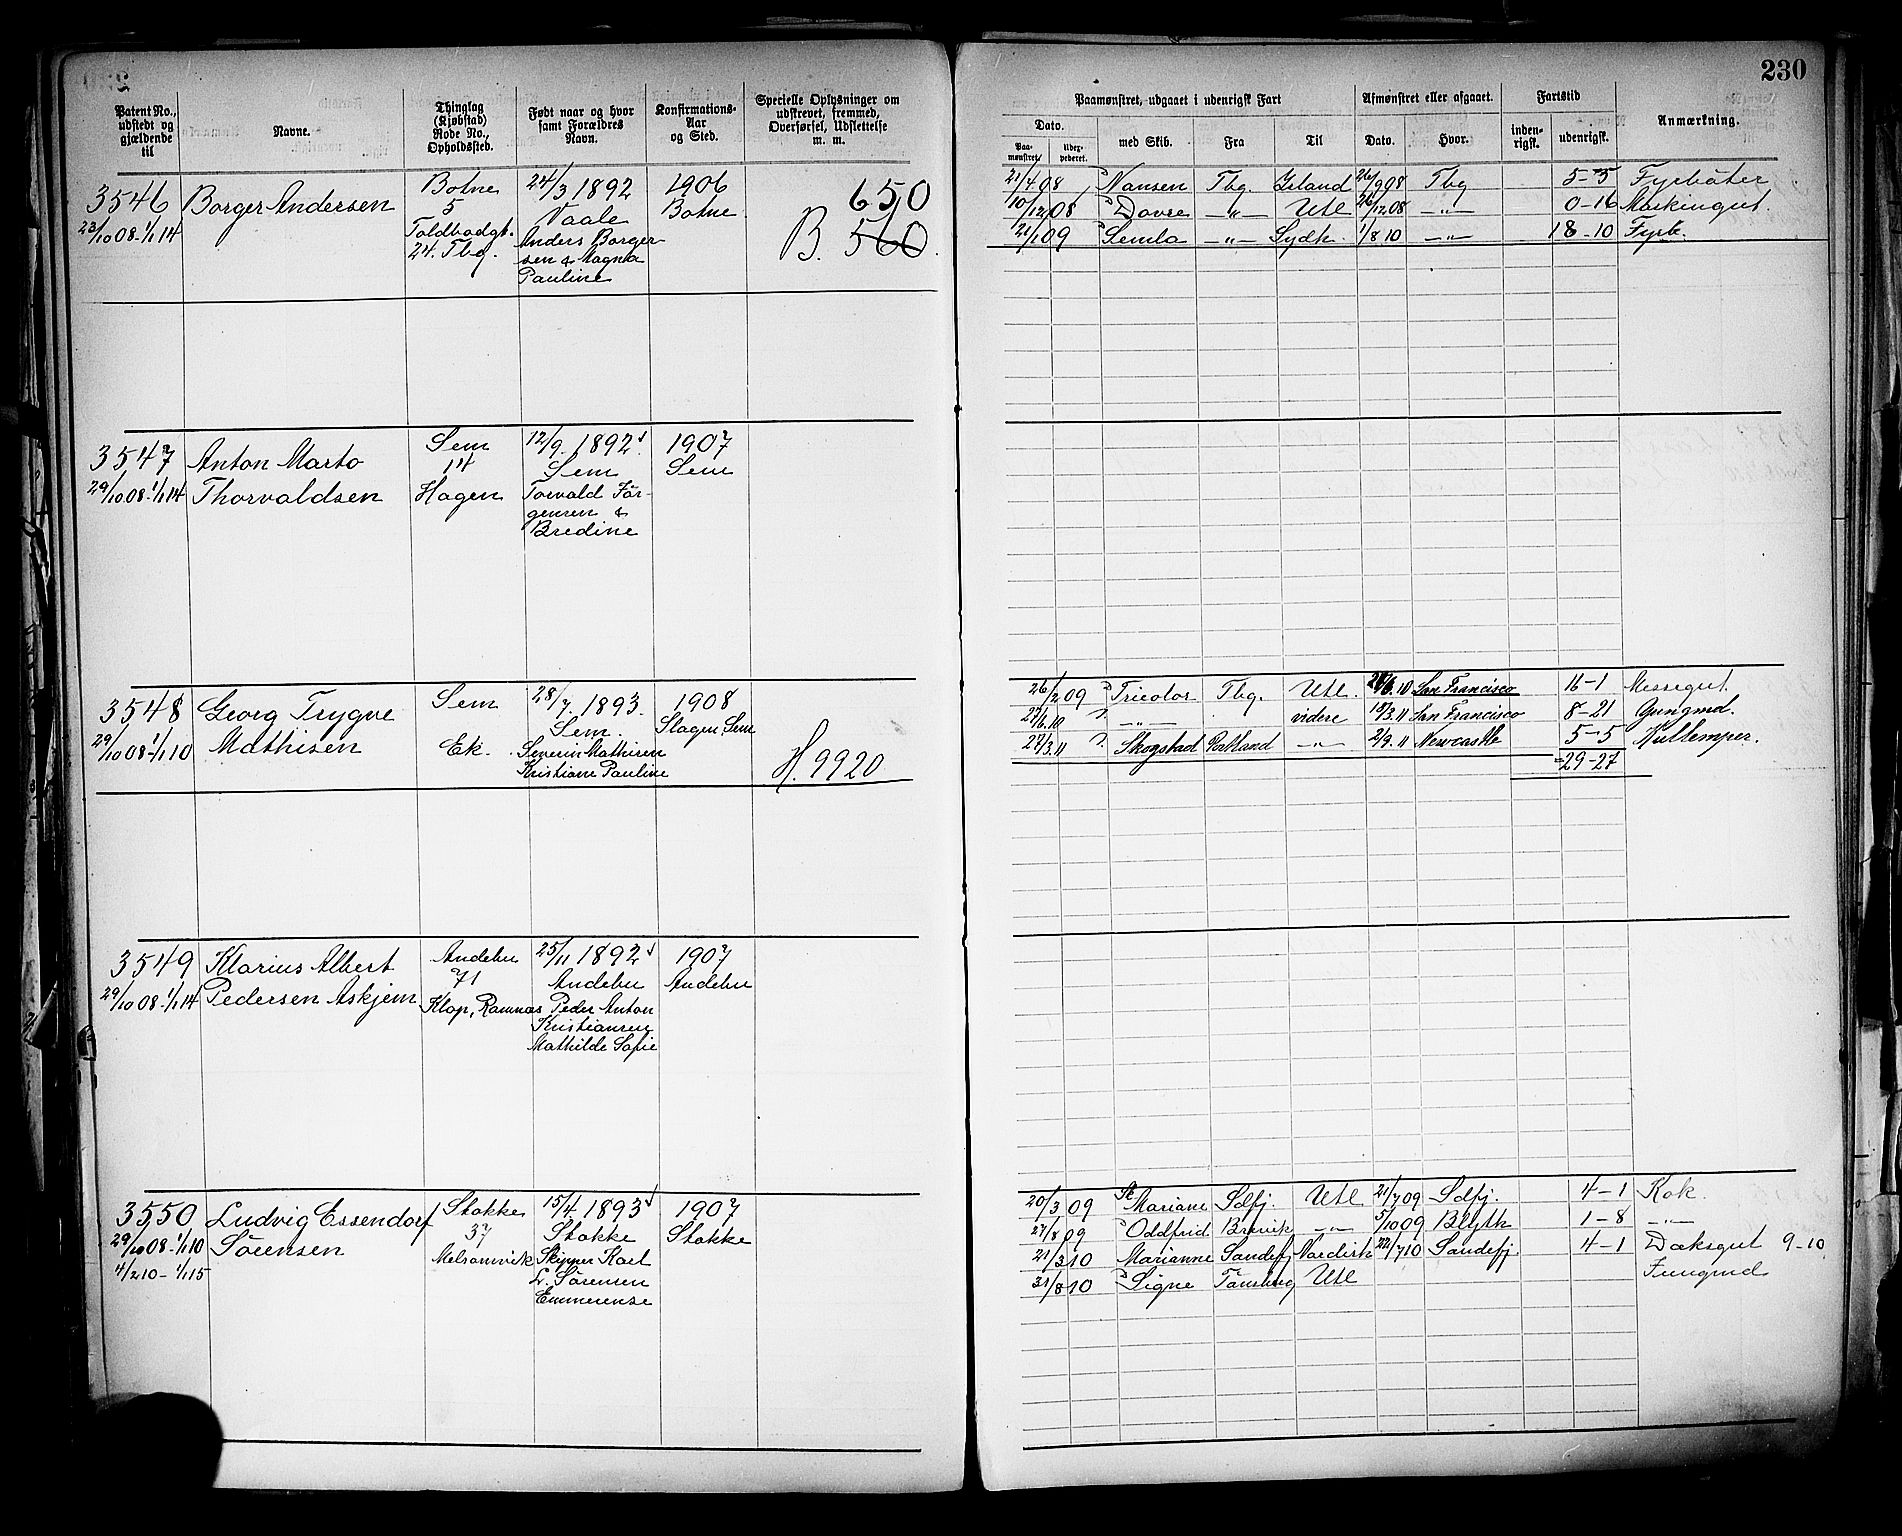 230
Patent No., udstedt og gjældende til
Navne.
Thinglag (Kjøbstad) Rode No., Opholdssted.
Født naar og hvor samt Forældres Navn.
Konfirmations-Aar og Sted.
Specielle Oplysninger om udstrevet, fremmed, Overførsel, Udslettelse m. m.
Paamønstret, udgaaet i udenrigsk Fart
Afmønstret eller afgaaet.
Fartstid
Anmærkning.
Dato.
med Skib.
Fra
Til
Dato.
Hvor.
inden-rigsk.
udenrigsk.
Paa-mønstret
3546
23/10 08-1/1 14
Borger Andersen
Botne
5
Toldbodgt.
24. Tbg.
24/3 1892
Vaale
Anders Borger-
sen & Magna
Pauline
1906
Botne
650
B. 560.
21/4 08 Nansen Tbg. Island 26/9 08 Tbg 5-5 Fyrbøter
10/12 08 Dovre -"- Utl 26/12 08 -"- 0-16 Maskingut.
21/1 09 Semla -"- Sydh. 1/8 10 -"- 18-10 Fyrb.
3547
29/10 08-1/1 14
Anton Marto
Thorvaldsen
Sem
14
Hagen
12/9. 1892
Sem
Torvald Jör-
gensen &
Bredine
1907
Sem
3548
29/10 08-1/1 10
Georg Trygve
Mathisen
Sem
Ek.
28/7. 1893.
Sem.
Severin Mathisen
Kristiane Pauline
1908
Slagen, Sem
H. 9920
26/2 09 Tricolor Tbg. Utl. 6.10 San Francisco 16-1 Messegut.
27/6.10 -"- videre 18/3.11 San Francisco 8-21 Jungmd.
27/3.11 Skogstad Portland -"- 2/9.11 Newcastle 5-5 Kullemper.
=29-27
3549
29/10 08-1/1 14
Klarius Albert
Pedersen Askjem
Andebu
71
Klop, Ramnæs
25/11 1892
Andebu
Peder Anton
Kristiansen
Mathilde Sofie
1907
Andebu
3550
29/10 08-1/1 10
4/2 10-1/1 15
Ludvig Essendorf
Sörensen
Stokke
37
Melsomvik
15/4. 1893
Stokke
Skipper Karl
L. Sörensen
Emmerense
1907
Stokke
20/3 09 Mariane Sdfj. Utl 21/7 09 Sdfj. 4-1 Kok.
27/8 09 Oddfrid Brevik -"- 5/10 09 Blyth 1-8 -"-
21/3 10 Marianne Sandefj Nordisk 22/7 10 Sandefj 4-1 Dæksgut 9-10
31/8 10 Signe Tönsberg Utl Jungmd